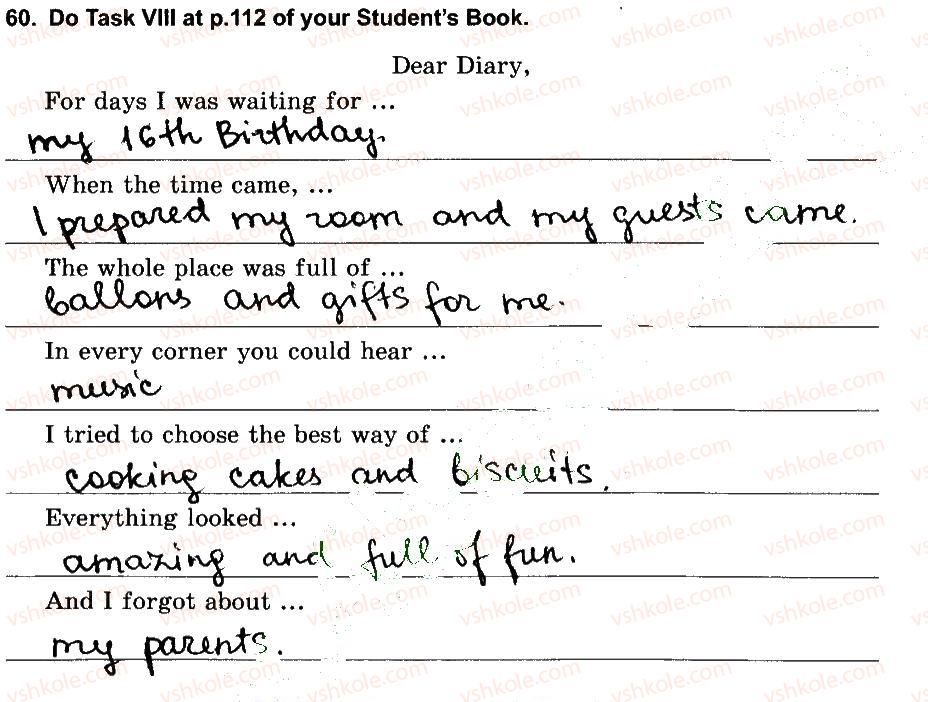 60. Do Task VIII at p.112 of your Student's Book.
Dear Diary,
For days I was waiting for ...
my 16th Birthday.
When the time came, ...
I prepared my room and my guests came.
The whole place was full of ...
ballons and gifts for me.
In every corner you could hear ...
music
I tried to choose the best way of ...
cooking cakes and biscuits.
Everything looked ...
amazing and full of fun.
And I forgot about ...
my parents.